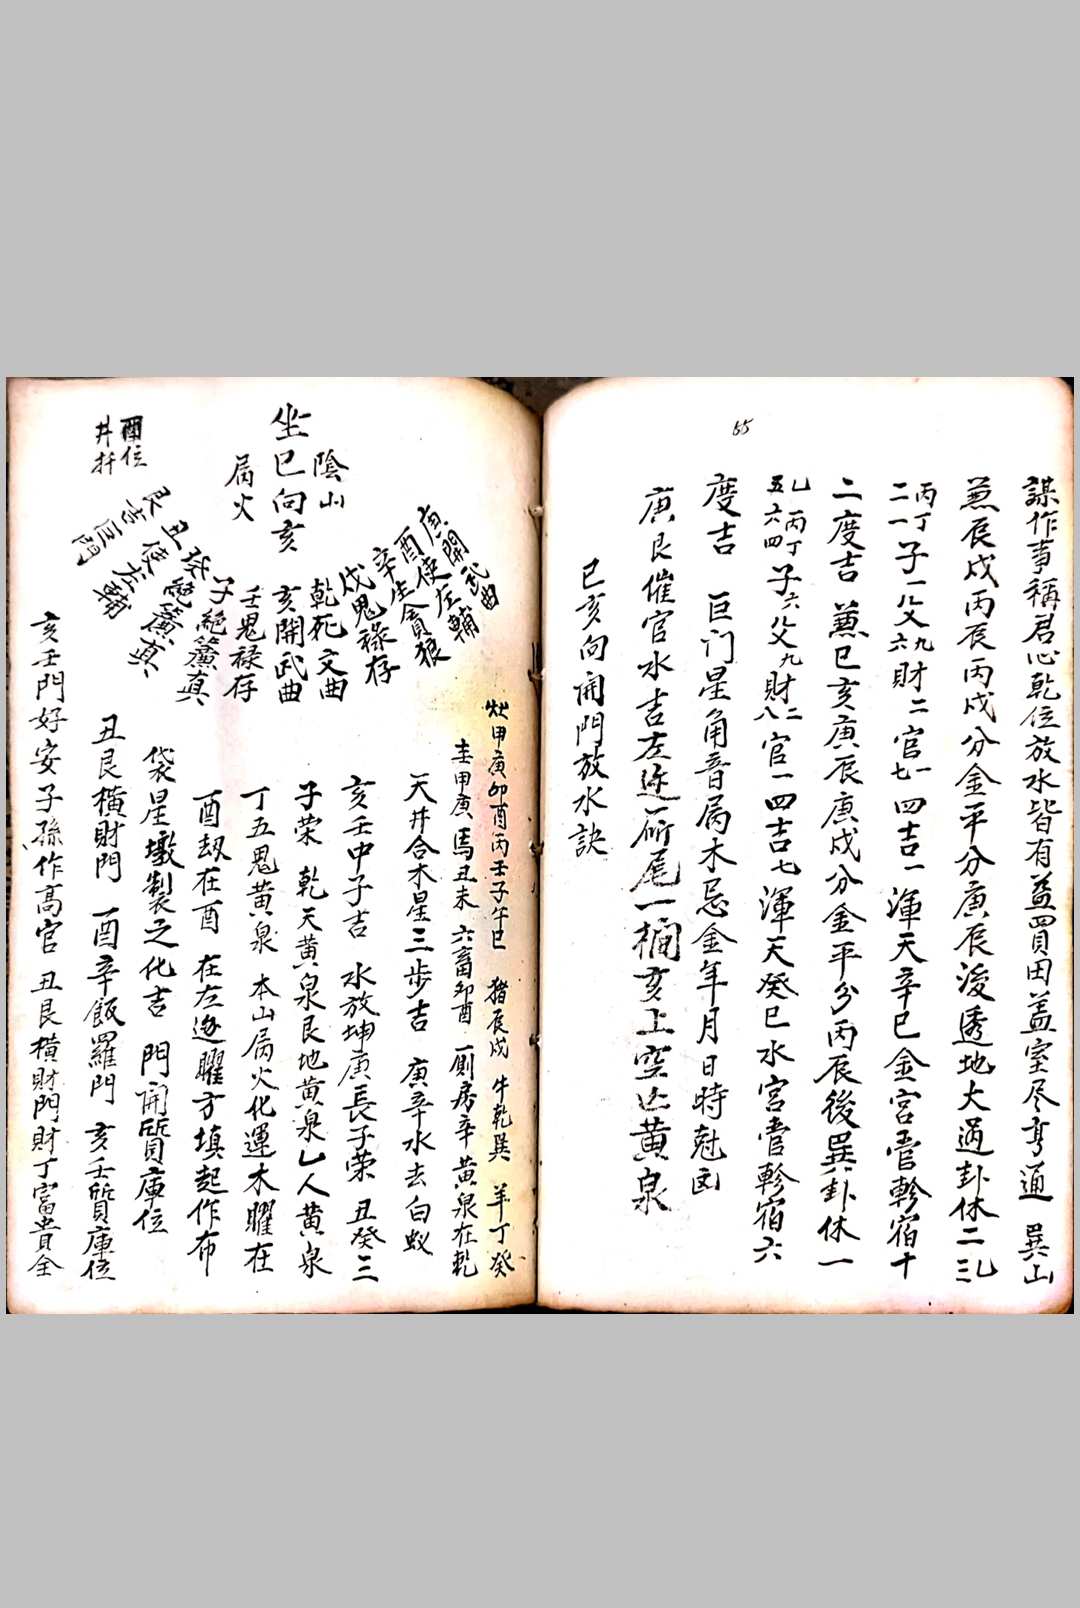 55
謀作事稱君心乾位放水皆有益買田蓋室尽亨通 巽山
兼辰戌丙辰丙戌分金平分庚辰後透地大過卦休二三乙
丙丁二一子一父九六財二官一七四吉一渾天辛巳金宮壹軫宿十
二度吉 兼巳亥庚辰庚戌分金平分丙辰後巽卦休一
乙五丙六丁四子六父九財二八官一四吉七渾天癸巳水宮壹軫宿六
度吉 巨门星角音属木忌金年月日時尅凶
庚艮催官水吉左边一所尾一橺亥上空亡黄泉
巳亥向開門放水訣
坐巳向亥
陰山
属火
庚開武曲
酉使左輔
辛生貪狼
戌鬼祿存
乾死文曲
亥開武曲
壬鬼禄存
子絕簾真
癸絕簾真
丑使左輔
艮吉巨門
酉位
井扦
灶甲庚卯酉丙壬子午巳 猪辰戌 牛乾巽 羊丁癸
圭甲庚馬丑未 六畜卯酉 厠房辛 黄泉在乾
天井合木星三步吉 庚辛水去白蚁
亥壬中子吉 水放坤庚長子荣 丑癸三
子荣 乾天黄泉艮地黄泉乙人黄泉
丁五鬼黄泉 本山属火化運木曜在
酉刼在酉 在左逐曜方填起作布
袋星墩製之化吉 門開質庫位
丑艮横財門 酉辛飯羅門 亥壬質庫位
亥壬門好安子孫作高官 丑艮横財門財丁富貴全